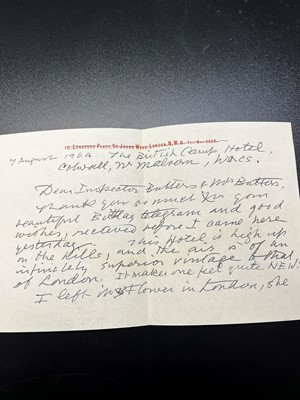 16 LANGFORD PLACE, ST. JOHNS WOOD, LONDON, N.W.8.
7 August 1964 The British Camp Hotel,
Colwall, Nr Malvern, Worcs.
Dear Inspector Butters & Mrs Butters,
Thank you so much for your
beautiful Birthday telegram and good
wishes, received before I came here
yesterday. This Hotel is high up
on the Hills, and the air is of an
infinitely superior vintage to that
of London. It makes one feel quite NEW!
I left Flower in London, she